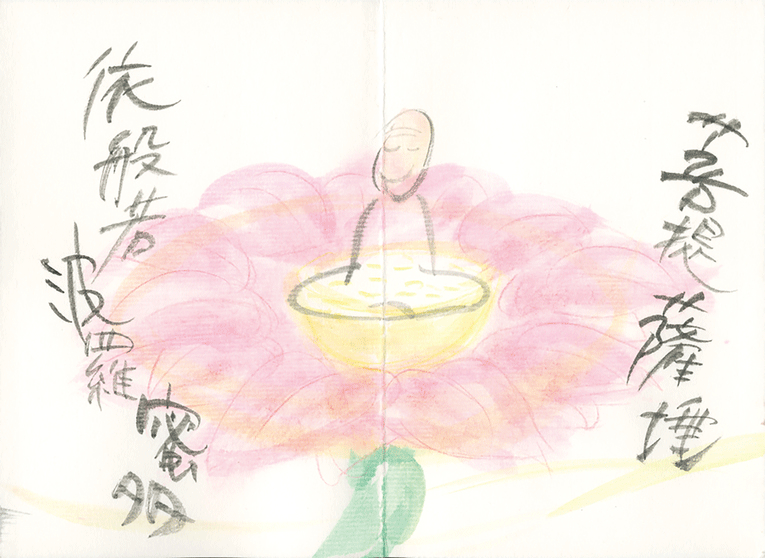 菩提薩埵
依般若
波羅
蜜多